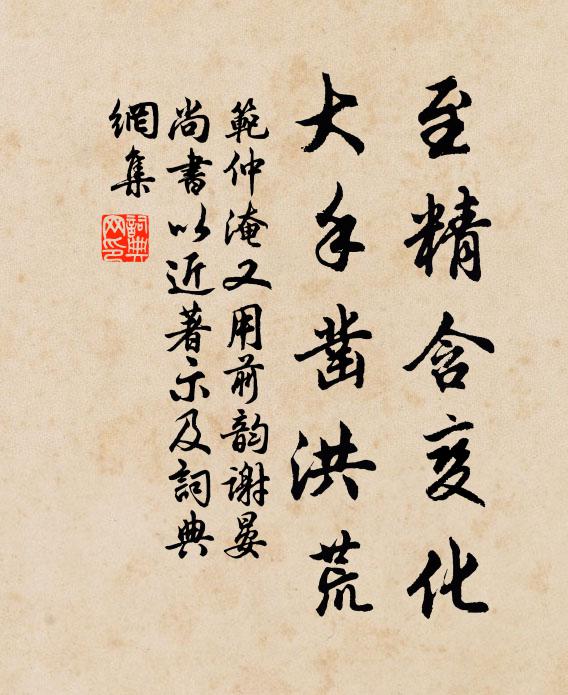 至精含变化
大手凿洪荒
範仲淹又用前韵谢晏
尚書以近著示及詞典
網集
詞典
网印